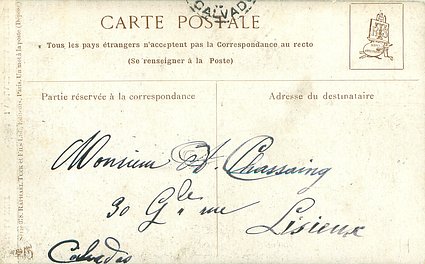 CALVAD
CARTE POSTALE
Tous les pays étrangers n'acceptent pas la Correspondance au recto
(Se renseigner à la Poste)
Partie réservée à la correspondance
Adresse du destinataire
Monsieur Chassaing
30 Gde rue
Lisieux
Calvados